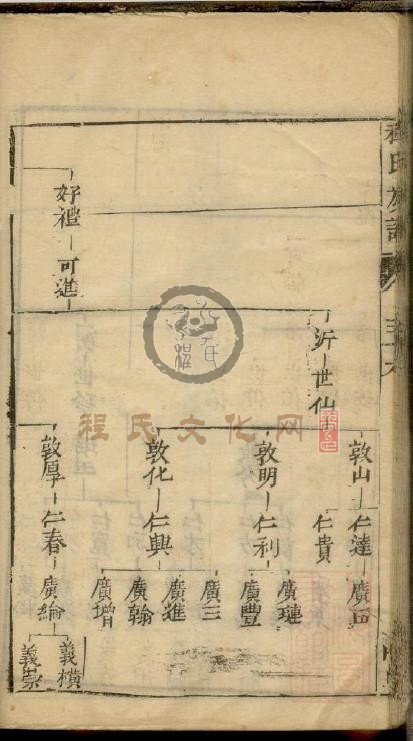 程氏族譜
好禮
可進
沂
世仙
敦山
仁達
仁貴
敦明
仁利
廣璉
廣豐
敦化
仁興
廣三
廣進
廣翰
廣增
敦厚
仁春
廣綸
義橫
義崇
程氏文化网